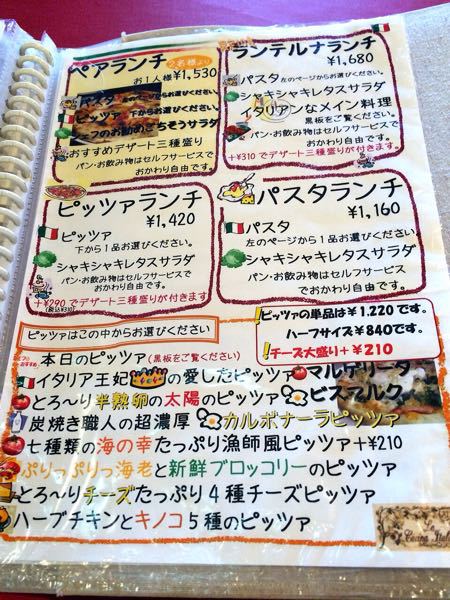 ペアランチ
2名様より
お1人様¥1,530
パスタ 左のページからお選びください。
ピッツァ 下からお選びください。
シェフのお勧めごちそうサラダ
おすすめデザート三種盛り
パン・お飲み物はセルフサービスで
おかわり自由です。
ランテルナランチ
¥1,680
パスタ 左のページからお選びください。
シャキシャキレタスサラダ
イタリアンなメイン料理
黒板をご覧ください。
パン・お飲み物はセルフサービスで
おかわり自由です。
+¥310でデザート三種盛りが付きます。
ピッツァランチ
¥1,420
ピッツァ
下から1品お選びください。
シャキシャキレタスサラダ
パン・お飲み物はセルフサービスで
おかわり自由です。
+¥290でデザート三種盛りが付きます
(税込¥310)
パスタランチ
¥1,160
パスタ
左のページから1品お選びください。
シャキシャキレタスサラダ
パン・お飲み物はセルフサービス
でおかわり自由です。
ピッツァはこの中からお選びください
ピッツァの単品は¥1.220です。
ハーフサイズ¥840です。
!チーズ大盛り+¥210
本日のピッツァ(黒板をご覧ください)
イタリア王妃の愛したピッツァマルゲリータ
とろ～り半熟卵の太陽のピッツァビスマルク
炭焼き職人の超濃厚カルボナーラピッツァ
七種類の海の幸たっぷり漁師風ピッツァ+¥210
ぷりっぷりっ海老と新鮮ブロッコリーのピッツァ
とろ～りチーズたっぷり4種チーズピッツァ
ハーブチキンとキノコ5種のピッツァ
La